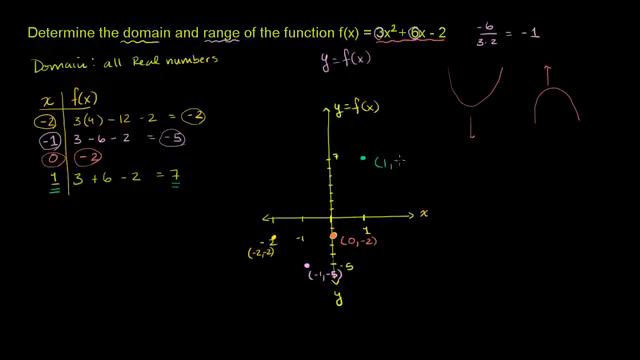 Determine the domain and range of the function f(x) = 3x² + 6x - 2
-6/3·2 = -1
Domain: all Real numbers
y = f(x)
x f(x)
-2 3(4) - 12 - 2 = -2
-1 3 - 6 - 2 = -5
0 -2
1 3 + 6 - 2 = 7
y = f(x)
7
(1,
x
-2
-1
1
(-2,-2)
(0,-2)
-5
(-1,-5)
y